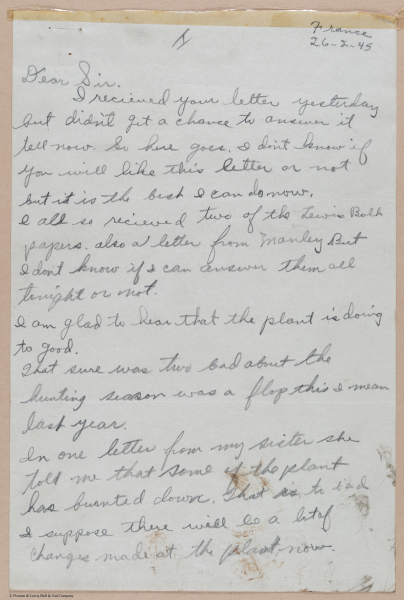 France
26-2-45
1
Dear Sir.
I recieved your letter yesterday
but didn't get a chance to answer it
tell now. So here goes, I don't know if
you will like this letter or not
but it is the best I can do now.
I all so recieved two of the Lewis Bolt
papers. also a letter from Manley But
I don't know if I can answer them all
tonight or not.
I am glad to hear that the plant is doing
so good.
That sure was two bad about the
hunting season was a flop this I mean
last year.
In one letter from my sister she
told me that some of the plant
has burnted down. That is to bad
I suppose there will be a lot of
changes made at the plant now.
© Preston & Lewis Bolt & Nut Company